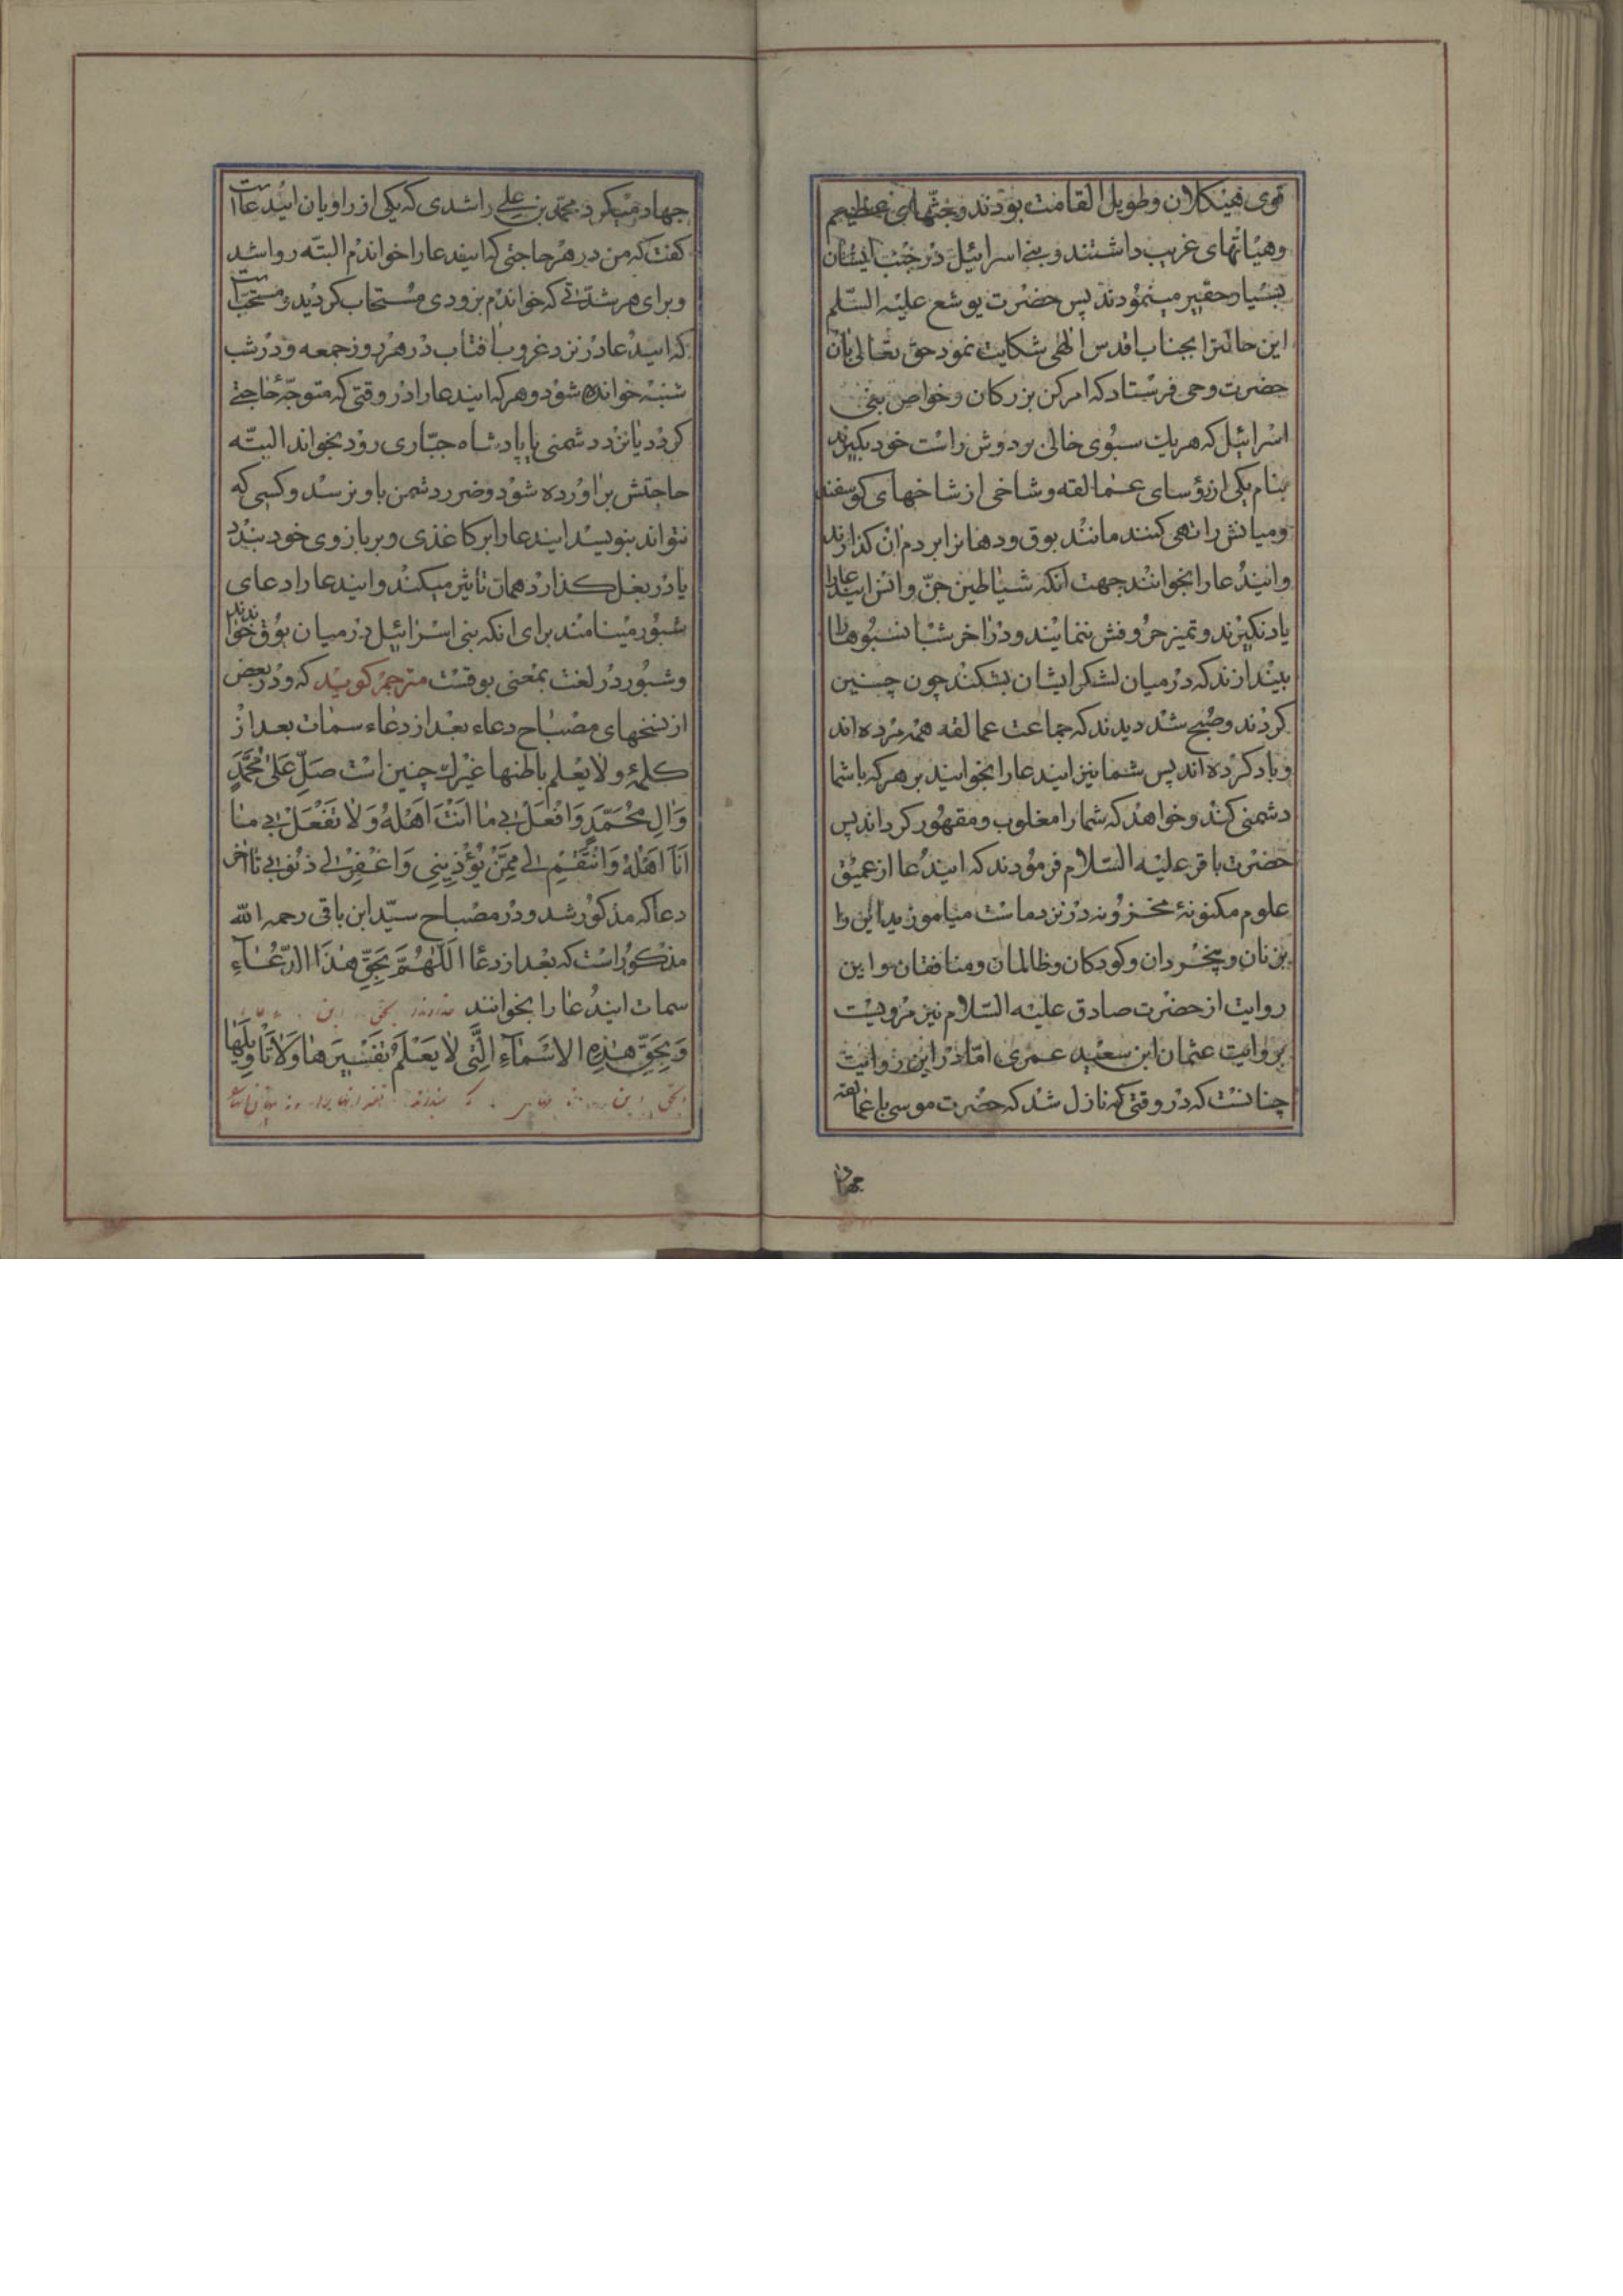 قوی هیکلان و طویل القامت بودند و جثهای عظیم
و هیاتهای غریب داشتند و بنی اسرائیل در جنب ایشان
بسیار حقیر مینمودند پس حضرت یوشع علیه السلم
این حالترا بجناب اقدس الهی شکایت نمود حق تعالی بآن
حضرت وحی فرستاد که امر کن بزرکان و خواص بنی
اسرائیل که هر یک سبوی خالی بر دوش راست خود بکیرند
بنام یکی از رؤسای عمالقه و شاخی از شاخهای کوسفند
و میانش را تهی کنند مانند بوق و دهانرا بر دم آن کذارند
و ایندعا را بخوانند جهت آنکه شیاطین جن و انس ایندعا را
یاد نکیرند و تمیز حروفش ننمایند و در آخر شب آنسبوها را
بیندازند که در میان لشکر ایشان بشکند چون چنین
کردند و صبح شد دیدند که جماعت عمالقه همه مرده اند
و باد کرده اند پس شما نیز ایندعا را بخوانید بر هر که با شما
دشمنی کند و خواهد که شما را مغلوب و مقهور کرداند پس
حضرت باقر علیه السلام فرمودند که ایندعا از عمیق
علوم مکنونهٔ مخزونه در نزد ماست میاموزید این را
بزنان و بیخردان و کودکان و ظالمان و منافقان و این
روایت از حضرت صادق علیه السلام نیز مرویست
بروایت عثمان ابن سعید عمری اما در این روایت
چنانست که در وقتی که نازل شد که حضرت موسی با عمالقه
جهاد
جهاد میکرد محمد بن علی راشدی که یکی از راویان ایندعا است
کفت که من در هر حاجتی که ایندعا را خواندم البته روا شد
و برای هر شدتی که خواندم بزودی مستجاب کردید و مستحبست
که ایندعا در نزد غروب افتاب در هر روز جمعه و در شب
شنبه خوانده شود و هر که ایندعا را در وقتی که متوجه حاجتی
کردد یا نزد دشمنی یا پادشاه جباری رود بخواند البته
حاجتش براورده شود و ضرر دشمن باو نرسد و کسی که
نتواند بنویسد ایندعا را بر کاغذی و بر بازوی خود بندد
یا در بغل کذارد همان تاثیر میکند و ایندعا را دعای
شبور مینامند برای آنکه بنی اسرائیل در میان بوق خواندند
و شبور در لغت بمعنی بوقست مترجم کوید که و در بعض
از نسخهای مصباح دعاء بعد از دعاء سمات بعد از
کلمهٔ و لا یعلم باطنها غیرک چنین است صَلِّ عَلی مُحَمَّدٍ
وَالِ مُحَمَّدٍ وَافْعَلْ بی ما اَنْتَ اَهْلُهُ وَلا تَفْعَلْ بی ما
اَنَا اَهْلُهُ وَانْتَقِمْ لی مِمَّنْ یُؤْذِینِی وَاغْفِرْ لی ذُنُوبی تا آخر
دعا که مذکور شد و در مصباح سید ابن باقی رحمه الله
مذکور است که بعد از دعا اَللّهُمَّ بِحَقِّ هذَا الدُّعاءِ
سمات ایندعا را بخوانند
وَبِحَقِّ هذِهِ الاَسْمآءِ الَّتی لا یَعْلَمُ تَفْسیرَها وَلا تَأویلَها